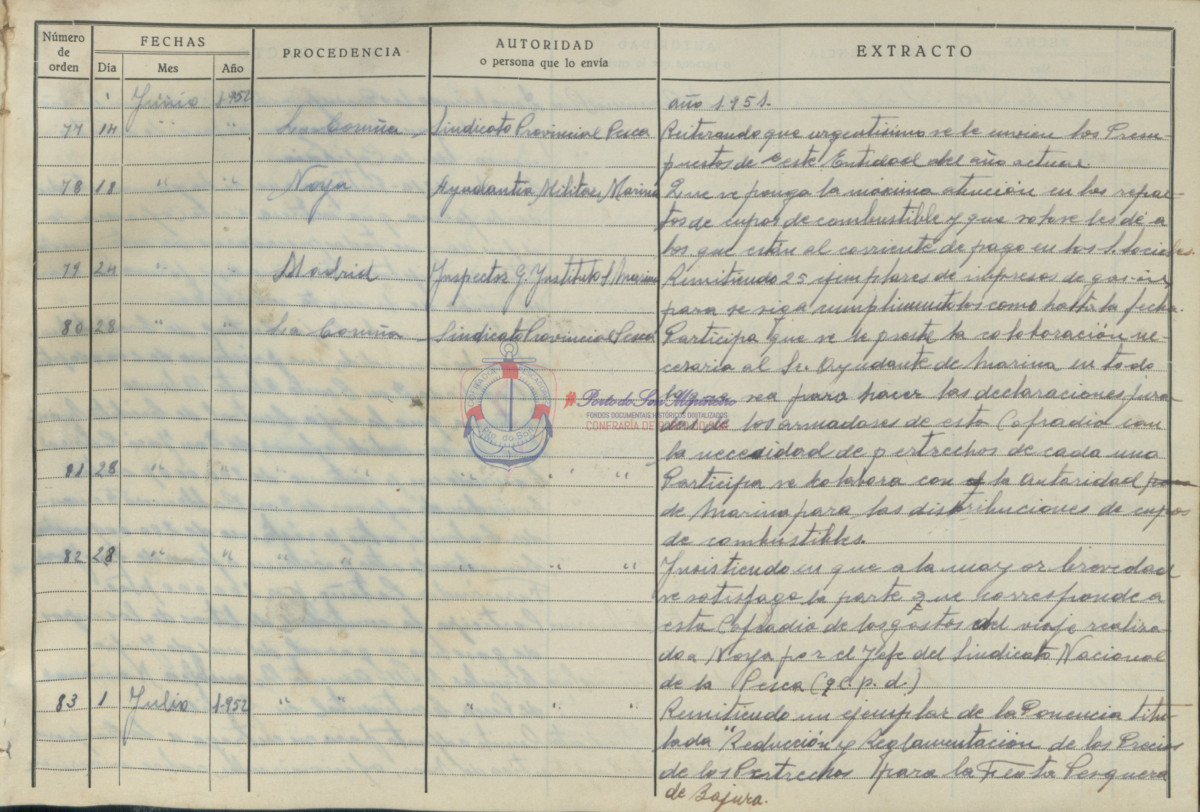 Número de orden FECHAS PROCEDENCIA AUTORIDAD o persona que lo envía EXTRACTO
Día Mes Año
Junio 1.952 año 1.951.
77 14 " " La Coruña Sindicato Provincial Pesca Reiterando que urgentisimo se le envien los Presu-
puestos de este Entidad del año actual.
78 18 " " Noya Ayudantia Militar Marina Que se ponga la máxima atención en los repar-
tos de cupos de combustible y que solo se les dé a
los que están al corriente de pago en los S. Sociales.
79 24 " " Madrid Inspector G. Instituto S. Marina Remitiendo 25 ejemplares de impresos de gas-oil
para se siga cumplimentolos como hasta la fecha.
80 28 " " La Coruña Sindicato Provincial Pesca Participa que se le preste la colaboración ne-
cesaria al Sr. Ayudante de Marina en todo
sea para hacer las declaraciones jura-
das de los armadores de esta Cofradia con
la necesidad de pertrechos de cada una
81 28 " " " " " " " Participa se kolabora con la autoridad
de Marina para las distribuciones de cupos
de combustibles.
82 28 " " " " " " " Insistiendo en que a la mayor brevedad
se satisfaga la parte que corresponde a
esta Cofradia de los gastos del viaje realiza-
do a Noya por el Jefe del Sindicato Nacional
de la Pesca (q.e.p.d.)
83 1 Julio 1.952 " " " " " Remitiendo un ejemplar de la Ponencia titu-
lada "Reducción y Reglamentación de los Precios
de los Pertrechos para la Flota Pesquera
de Bajura.
#Porto de San
FONDOS DOCUMENTAIS HISTÓRICOS DIGITALIZADOS
CONFRARÍA DE